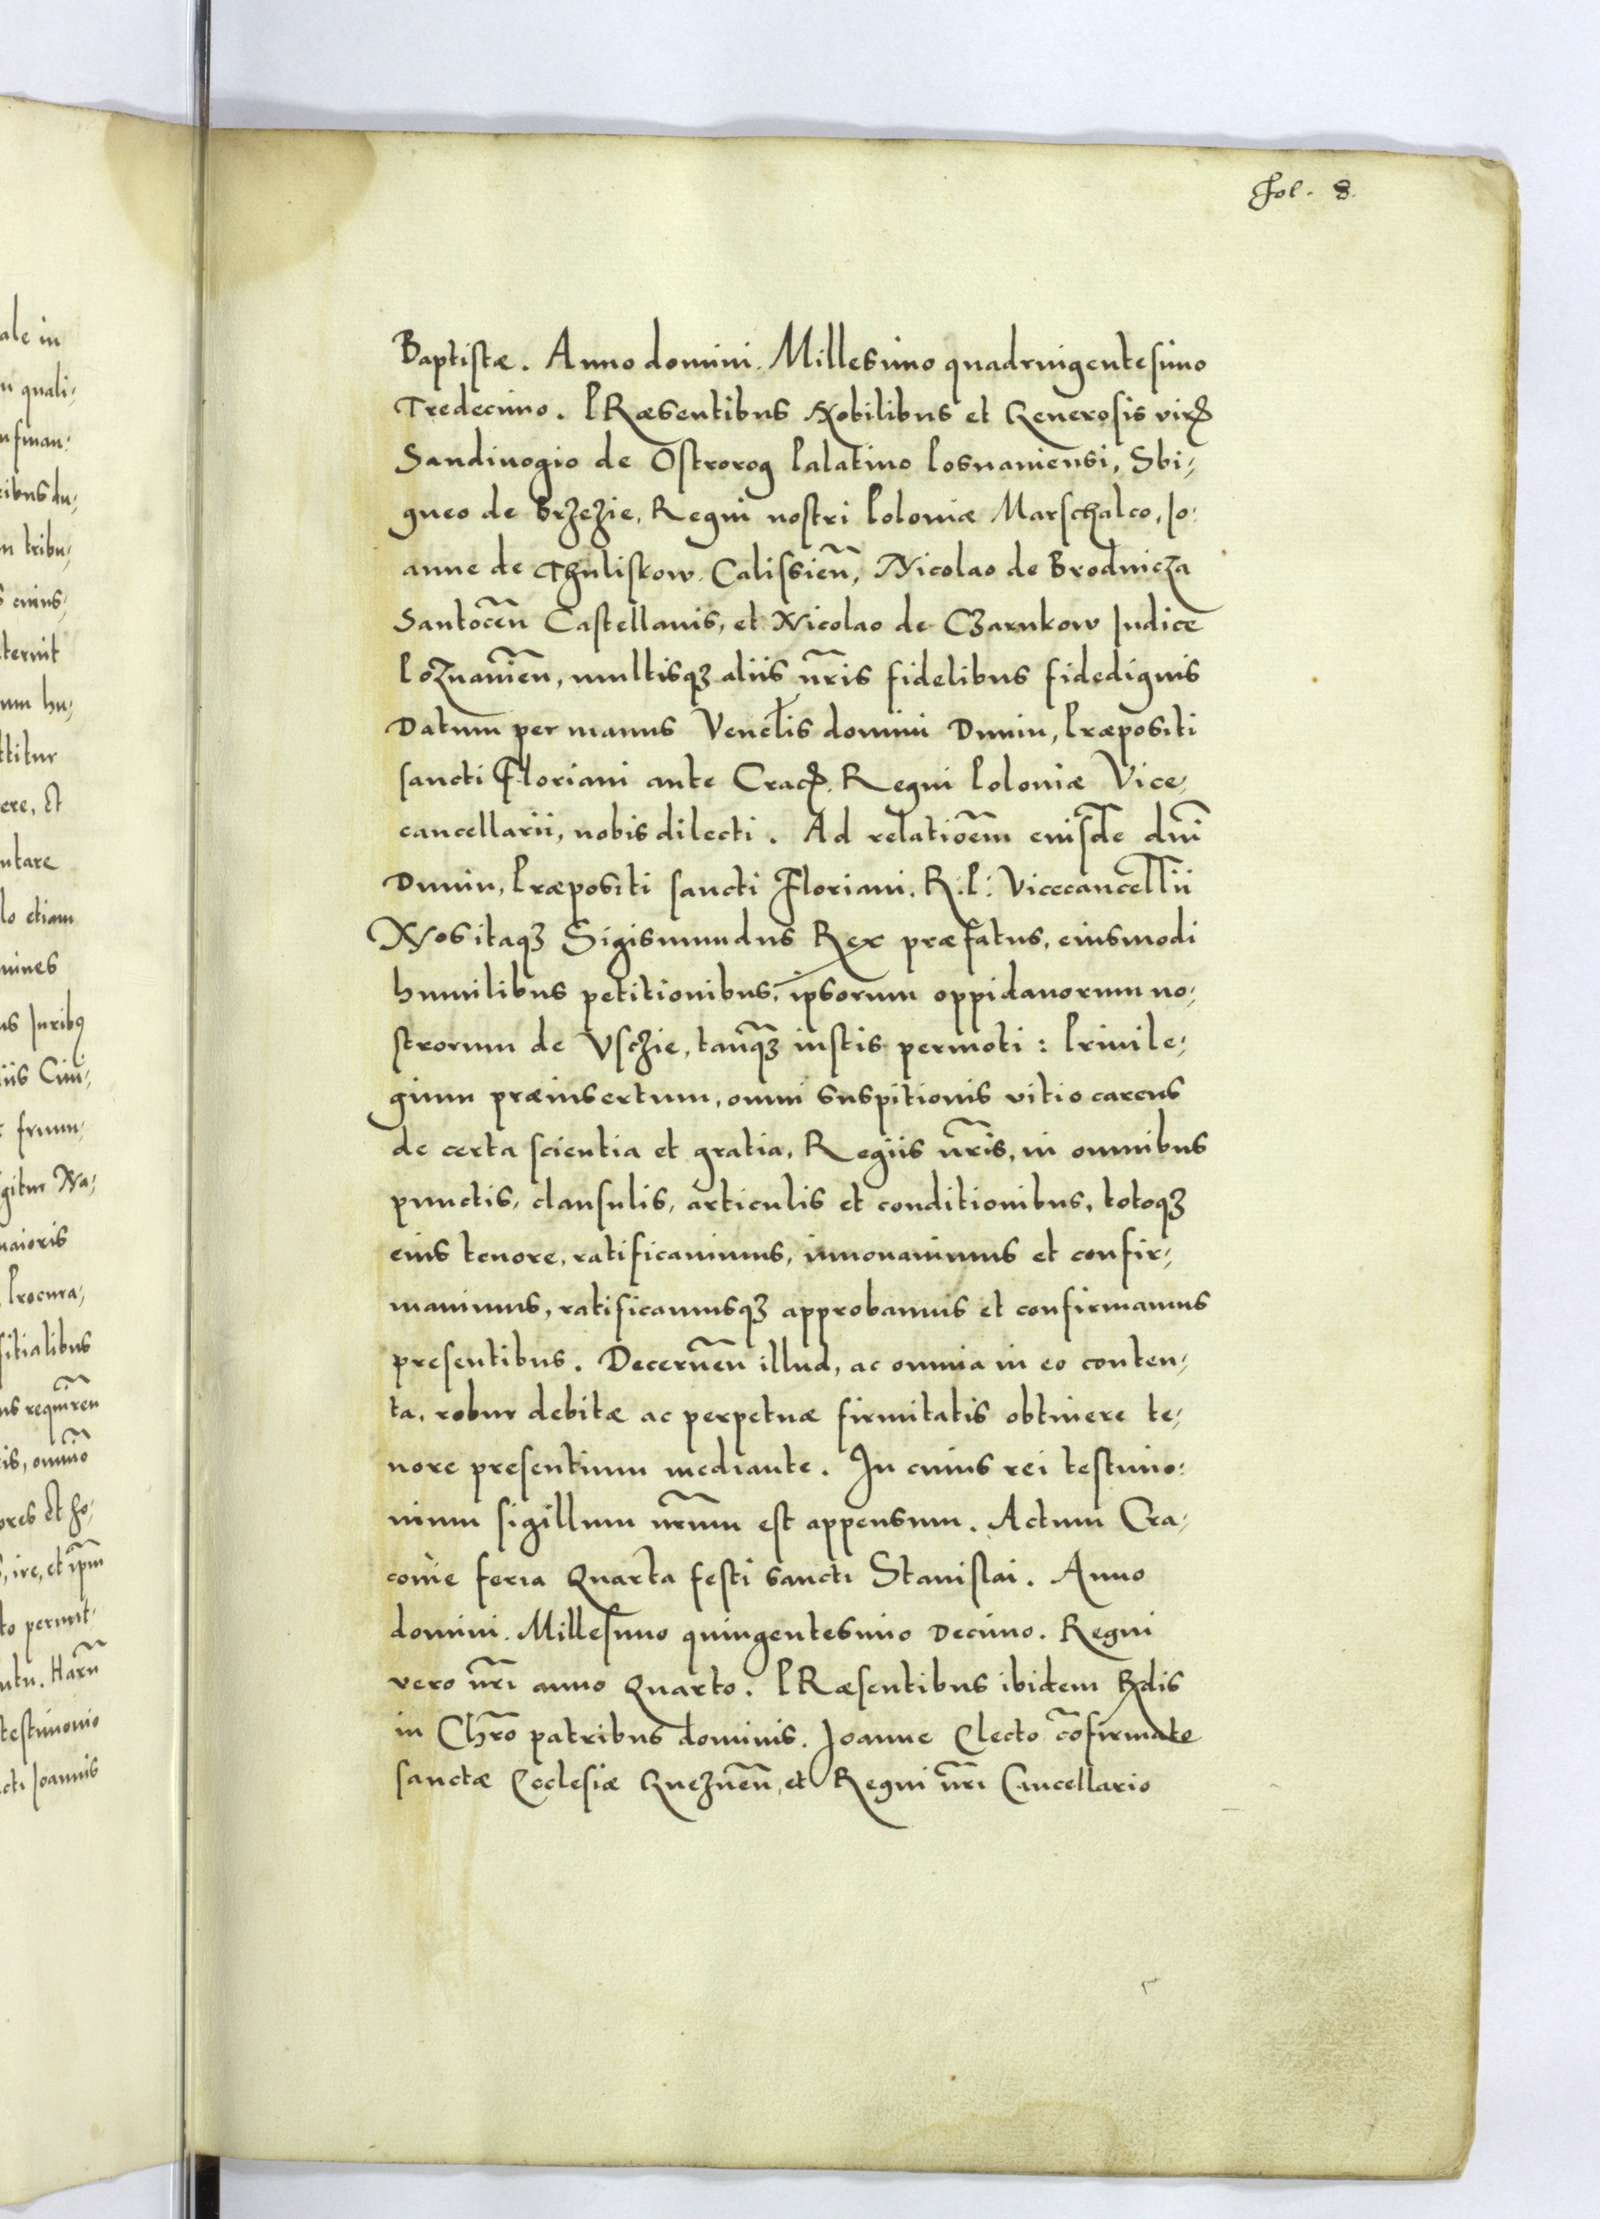 Fol. 8.
Baptistæ. Anno domini. Millesimo quadringentesimo
Tredecimo. PRæsentibus Nobilibus et Generosis
Sandivogio de Ostrorog Palatino Posnaniensi, Sbi-
gneo de Brzezie, Regni nostri Poloniæ Marschalco, Io-
anne de Thuliskow. Calissieñ, Nicolao de Brodnicza
Santoceñ Castellanis, et Nicolao de Czarnkow Iudice
Poznanieñ, multisqʒ aliis nr̃is fidelibus fidedignis
Datum per manus Venelis domini Dunin, Præpositi
sancti Floriani ante Regni Poloniæ Vice-
cancellarii, nobis dilecti. Ad relatioẽm eiusdẽ dñi
Dunin, Præpositi sancti Floriani. R. P: Vicecancellii
Nos itaqʒ Sigismundus Rex præfatus, eiusmodi
humilibus petitionibus, ipsorum oppidanorum no-
strorum de Vschie, tanq̃ʒ iustis permoti: Privile-
gium præinsertum, omni suspitionis vitio carens
de certa scientia et gratia, Regiis nr̃is, in omnibus
punctis, clausulis, articulis et conditionibus, totoqʒ
eius tenore, ratificavimus, innovavimus et confir-
mavimus, ratificamusqʒ approbamus et confirmamus
presentibus. Decerneñ illud, ac omnia in eo conten-
ta, robur debitæ ac perpetuæ firmitatis obtinere te-
nore presentium mediante. In cuius rei testimo-
nium sigillum nr̃um est appensum. Actum Cra-
covie feria Quarta festi sancti Stanislai. Anno
domini. Millesimo quingentesimo Decimo. Regni
vero nr̃i anno Quarto. PRæsentibus ibidem Rdis
in Chr̃o patribus dominis. Joanne Electo cõfirmate
sanctæ Ecclesiæ Gnezneñ, et Regni nr̃i Cancellario
ale in
quali-
ribus du-
tribu-
eius-
ternit
um hu-
ttitur
ere, et
ntare
lo etiam
mines
us Iuribꝰ
iis Civi-
frum-
gitur Na-
maioris
Procura-
sitialibus
requireñ
is, omnĩo
ores et
ire, et ip̃m
to permit-
ntu. Harũ
testimonio
cti Joannis